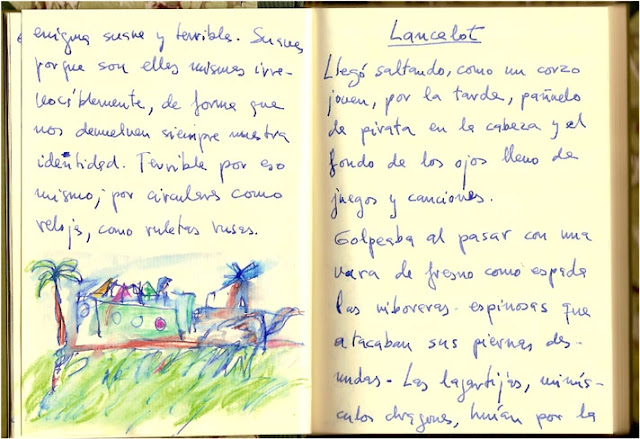 enigma suave y terrible. Suaves
porque son ellas mismas irre-
nociblemente, de forma que
nos devuelven siempre nuestra
identidad. Terrible por eso
mismo, por circulares como
relojs, como ruletas rusas.
Lancelot
Llegó saltando, como un corzo
joven, por la tarde, pañuelo
de pirata en la cabeza y el
fondo de los ojos lleno de
juegos y canciones.
Golpeaba al pasar con una
vara de fresno como espada
las viboreras espinosas que
atacaban sus piernas des-
nudas. Las lagartijas, minús-
culos dragones, huían por la